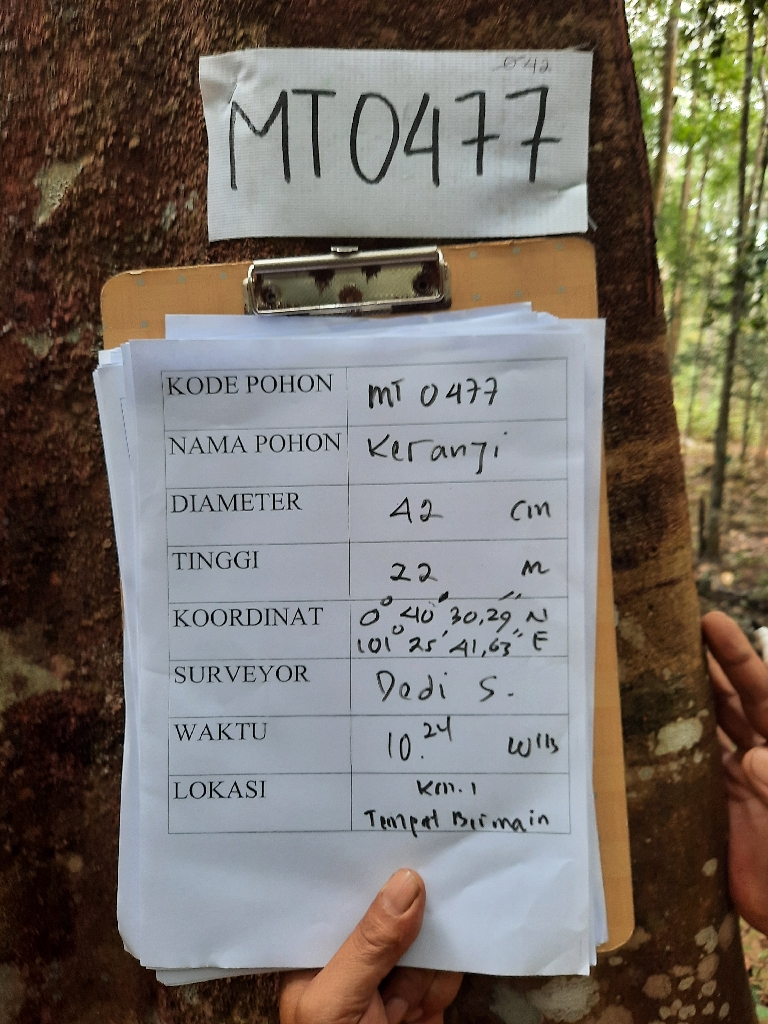 042
MT0477
KODE POHON mT 0477
NAMA POHON Keranji
DIAMETER 42 cm
TINGGI 22 m
KOORDINAT 0° 40' 30,29" N
101° 25' 41,63" E
SURVEYOR Dedi S.
WAKTU 10.24 WIB
LOKASI Km. 1
Tempat Bermain